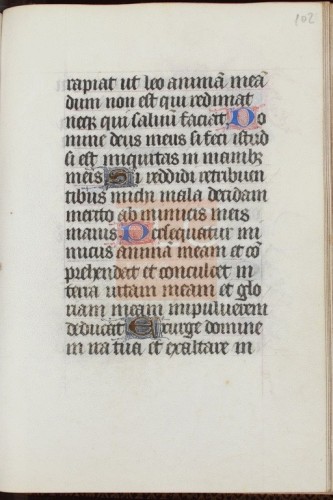 102
rapiat ut leo animā meā
dum non est qui redimat
neqꝫ qui saluū faciat Do
mine deus meus si feci istud
si est iniquitas in manibꝫ
meis Si reddidi retribuen
tibus michi mala decidam
merito ab inimicis meis
inanis Persequatur ini
micus animā meam et cō
prehendat et conculcet in
terra uitam meam et glo
riam meam in puluerem
deducat Exurge domine
in ira tua et exaltare in